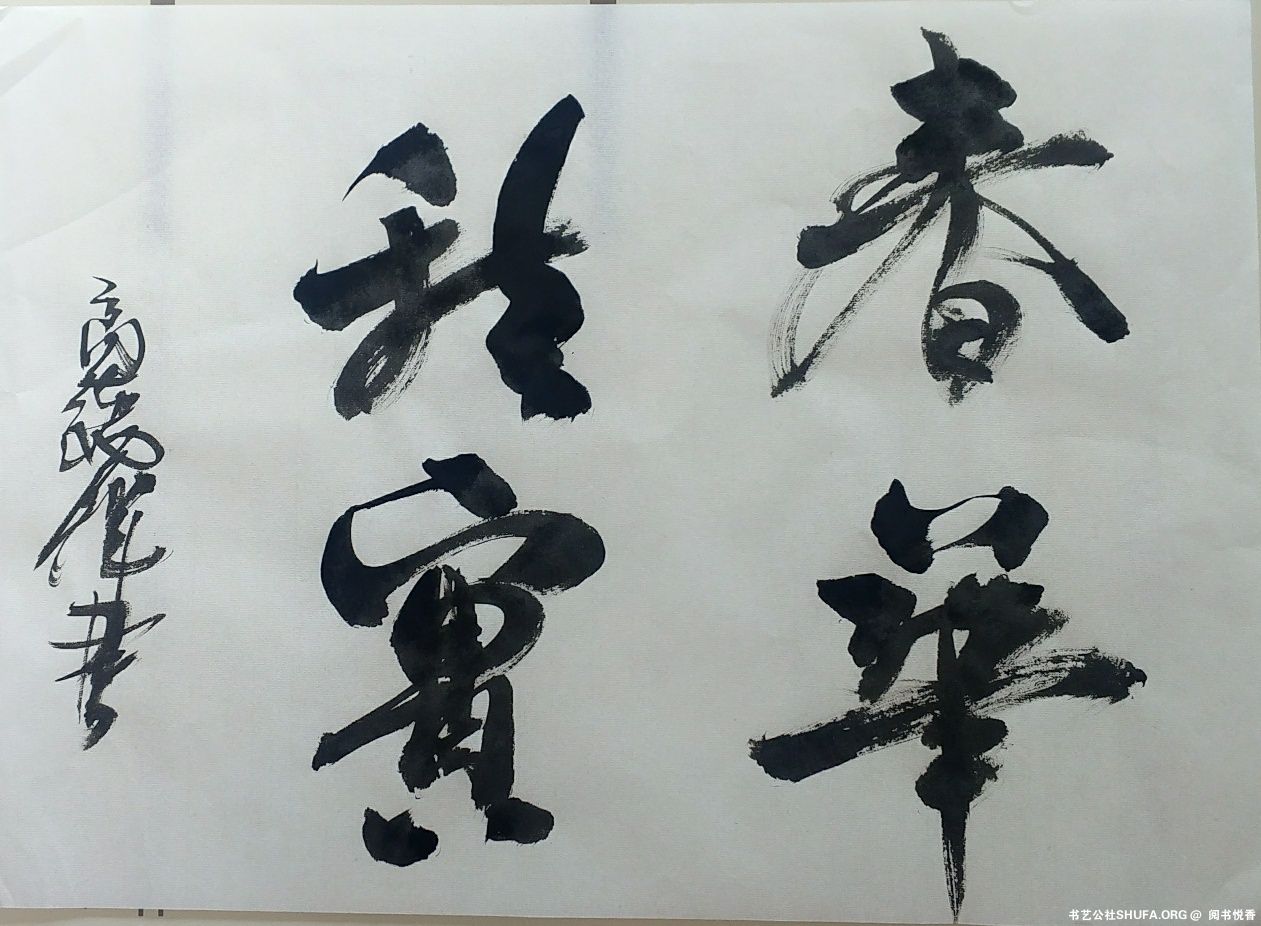 春華
秋實
書
书艺公社SHUFA.ORG @ 阅书悦香